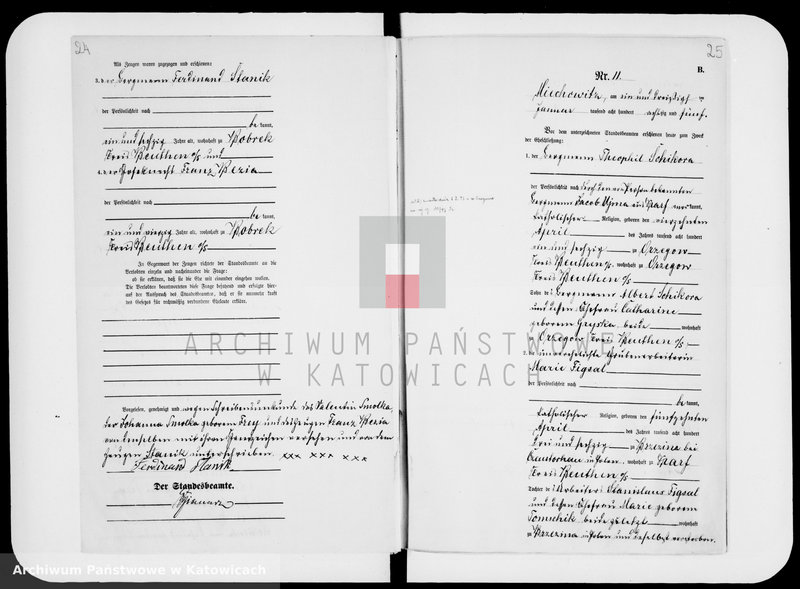 24
Als Zeugen waren zugezogen und erschienen:
3. der Bergmann Ferdinand Stanik
der Persönlichkeit nach
be kannt,
ein und sechzig Jahre alt, wohnhaft zu Bobrek
Kreis Beuthen o/s und
4. der Franz Bezia
der Persönlichkeit nach
be kannt,
ein und vierzig Jahre alt, wohnhaft zu Bobrek
Kreis Beuthen o/s
In Gegenwart der Zeugen richtete der Standesbeamte an die
Verlobten einzeln und nacheinander die Frage:
ob sie erklären, daß sie die Ehe mit einander eingehen wollen.
Die Verlobten beantworteten diese Frage bejahend und erfolgte hier-
auf der Ausspruch des Standesbeamten, daß er sie nunmehr kraft
des Gesetzes für rechtmäßig verbundene Eheleute erkläre.
Vorgelesen, genehmigt und wegen Schreibensunkunde des Valentin Smolka,
der Johanna Smolka geborenen Frey und des Zeugen Franz Bezia
von denselben mit ihren Handzeichen versehen und von dem
Zeugen Stanik unterschrieben. xxx xxx xxx
Ferdinand Stanik
Der Standesbeamte.
25
B.
Nr. 11.
Miechowitz, am ein und dreißigsten
Januar tausend acht hundert achtzig und fünf.
Vor dem unterzeichneten Standesbeamten erschienen heute zum Zweck
der Eheschließung:
1. der Bergmann Theophil Schikora
der Persönlichkeit nach durch den von Person bekannten
Bergmann Jacob Ujma aus Karf aner kannt,
katholischer Religion, geboren den vierzehnten
April des Jahres tausend acht hundert
ein und sechzig zu Orzegow
Kreis Beuthen o/s, wohnhaft zu Orzegow
Kreis Beuthen o/s
Sohn des Bergmanns Albert Schikora
und dessen Ehefrau Catharine
geborenen beide wohnhaft
zu Orzegow Kreis Beuthen o/s
2. die unverehelichte Grubenarbeiterin
Marie Figsal
der Persönlichkeit nach
be kannt,
katholischer Religion, geboren den fünfzehnten
April des Jahres tausend acht hundert
drei und sechzig zu Brzezina bei
Czenstochau in Polen, wohnhaft zu Karf
Kreis Beuthen o/s
Tochter des Arbeiters Stanislaus Figsal
und dessen Ehefrau Marie geborenen
beide zuletzt wohnhaft
zu Brzezina in Polen und daselbst verstorben.
ARCHIWUM PAŃSTWOWE
W KATOWICACH
Archiwum Państwowe w Katowicach